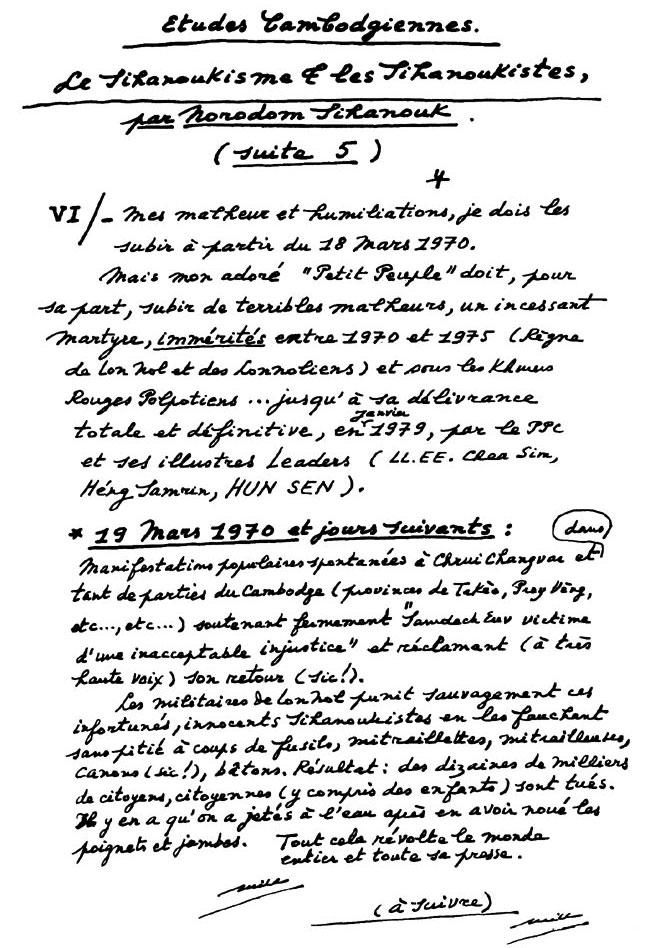 Etudes Cambodgiennes.
Le Sihanoukisme & les Sihanoukistes,
par Norodom Sihanouk.
(suite 5)
VI/- Mes malheur et humiliations, je dois les
subir à partir du 18 Mars 1970.
Mais mon adoré "Petit Peuple" doit, pour
sa part, subir de terribles malheurs, un incessant
Martyre, immérités entre 1970 et 1975 (Règne
de Lon Nol et des Lonnoliens) et sous les Khmers
Rouges Polpotiens ... jusqu'à sa délivrance
totale et définitive, en janvier 1979, par le PPC
et ses illustres Leaders (LL.EE. Chea Sim,
Héng Samrin, HUN SEN).
* 19 Mars 1970 et jours suivants :
Manifestations populaires spontanées à Chrui Changvar et dans
tant de parties du Cambodge (provinces de Takèo, Prey Vèng,
etc..., etc...) soutenant fermement "Samdech Euv victime
d'une inacceptable injustice" et réclamant (à très
haute voix) son retour (sic!).
Les militaires de Lon Nol punit sauvagement ces
infortunés, innocents Sihanoukistes en les fauchant
sans pitié à coups de fusils, mitraillettes, mitrailleuses,
canons (sic!), bâtons. Résultat : des dizaines de milliers
de citoyens, citoyennes (y compris des enfants) sont tués.
Il y en a qu'on a jetés à l'eau après en avoir noué les
poignets et jambes. Tout cela révolte le monde
entier et toute sa presse.
(à suivre)